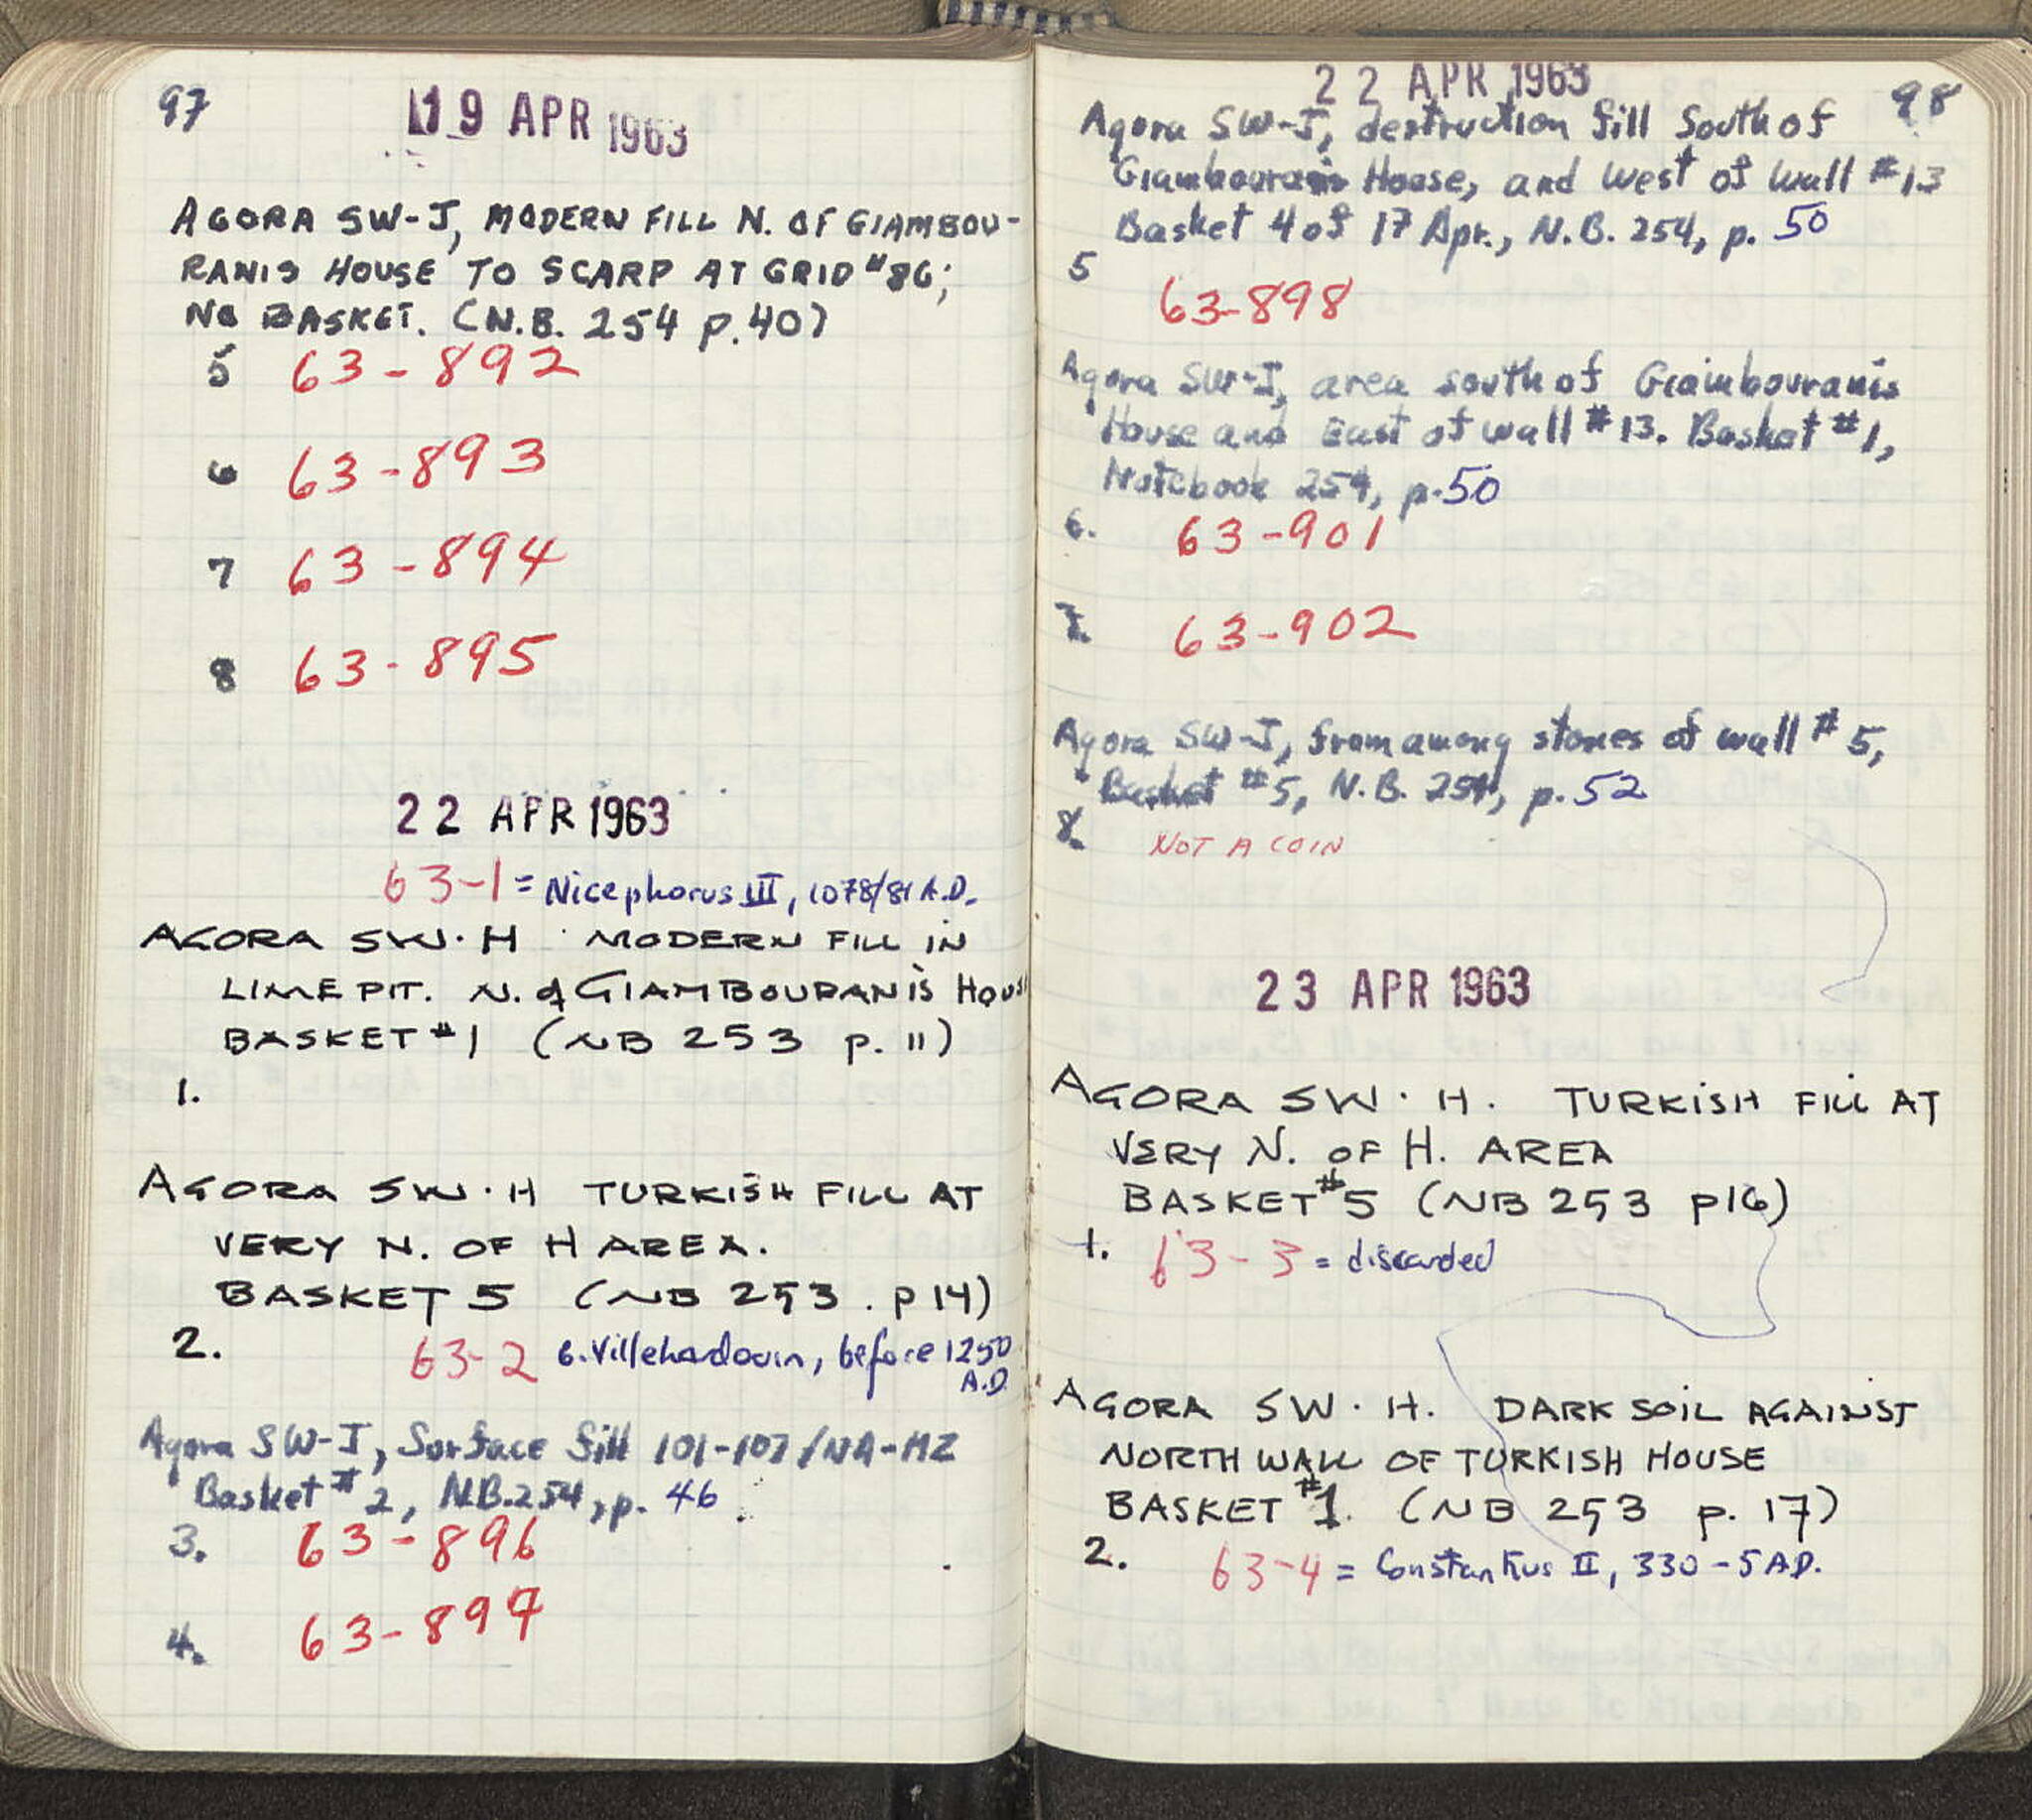 97
19 APR 1963
AGORA SW-J, MODERN FILL N. OF GIAMBOU-
RANIS HOUSE TO SCARP AT GRID #86;
NO BASKET. (N.B. 254 p.40)
5 63-892
6 63-893
7 63-894
8 63-895
22 APR 1963
63-1 = Nicephorus III, 1078/81 A.D.
AGORA SW.H MODERN FILL IN
LIME PIT. N. of GIAMBOURANIS HOUSE
BASKET #1 (NB 253 p. 11)
1.
AGORA SW.H TURKISH FILL AT
VERY N. OF H AREA.
BASKET 5 (NB 253. p 14)
2. 63-2 G. Villehardouin, before 1250
A.D.
Agora SW-J, Surface fill 101-107/NA-MZ
Basket #2, N.B. 254, p. 46
3. 63-896
4. 63-897
22 APR 1963
98
Agora SW-J, destruction fill South of
Giambouranis House, and West of Wall #13
Basket 4 of 17 Apr., N.B. 254, p. 50
5
63-898
Agora SW-J, area south of Giambouranis
House and East of wall #13. Basket #1,
Notebook 254, p. 50
6. 63-901
7. 63-902
Agora SW-J, from among stones of wall #5,
Basket #5, N.B. 254, p. 52
8. NOT A COIN
23 APR 1963
AGORA SW.H. TURKISH FILL AT
VERY N. OF H. AREA
BASKET #5 (NB 253 p16)
1. 63-3 = discarded
AGORA SW.H. DARK SOIL AGAINST
NORTH WALL OF TURKISH HOUSE
BASKET #1. (NB 253 p. 17)
2. 63-4 = Constantius II, 330-5 A.D.